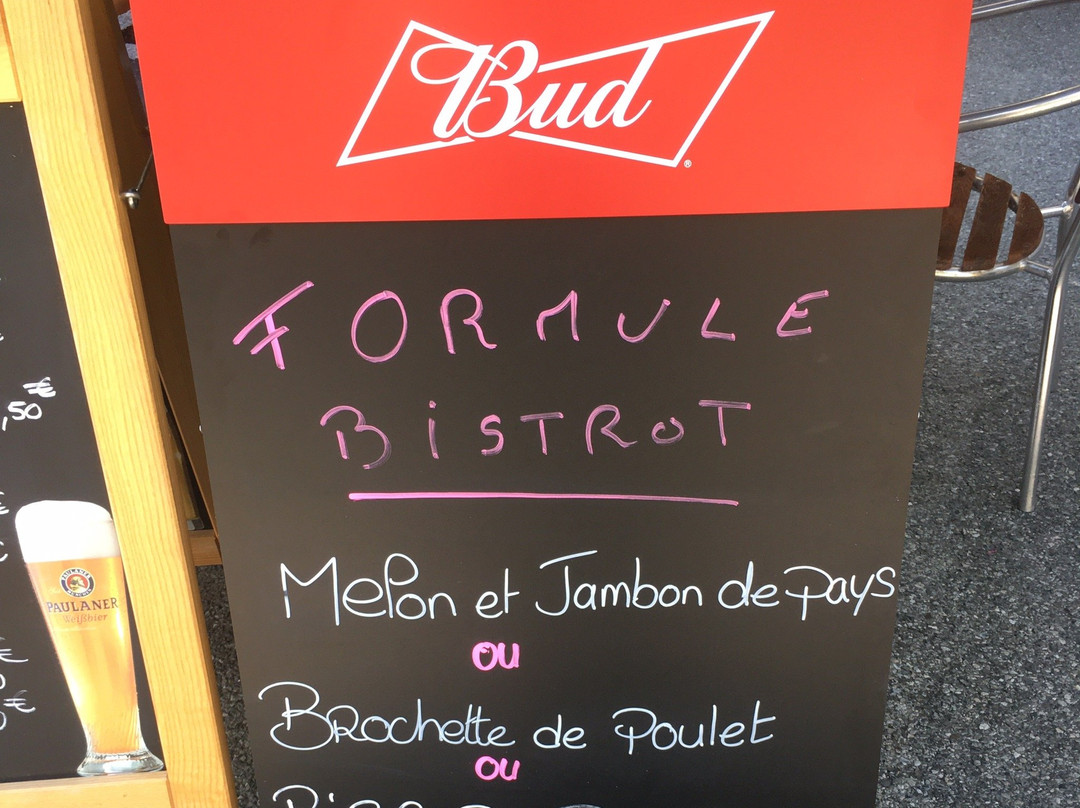 Bud
®
FORMULE
BiSTROT
Melon et Jambon de pays
ou
Brochette de Poulet
ou
,50€
PAULANER
Weißbier